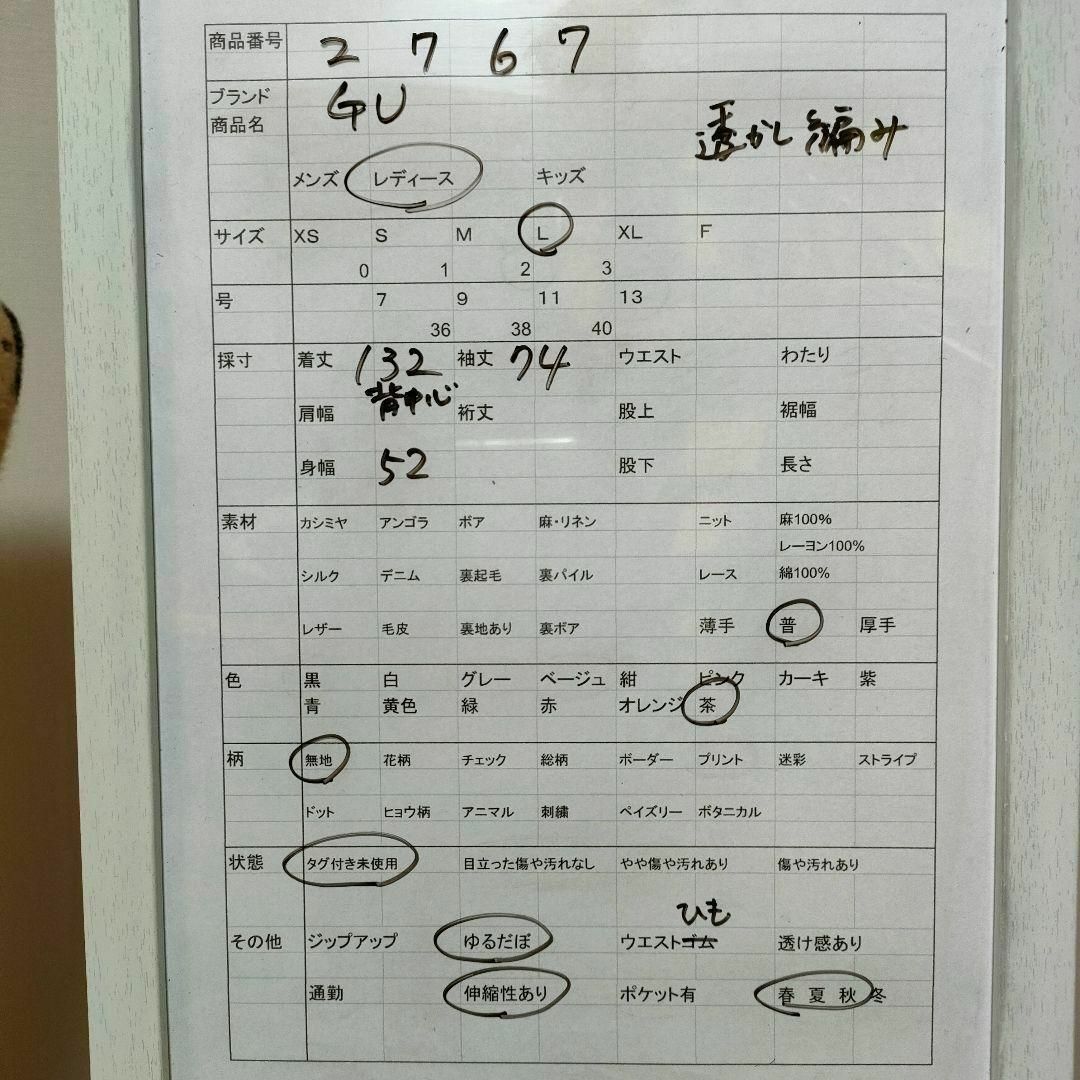 商品番号 2 7 6 7
ブランド GU
商品名 透かし編み
メンズ レディース キッズ
サイズ XS S M L XL F
0 1 2 3
号 7 9 11 13
36 38 40
採寸 着丈 132 袖丈 74 ウエスト わたり
背中心
肩幅 裄丈 股上 裾幅
身幅 52 股下 長さ
素材 カシミヤ アンゴラ ボア 麻・リネン ニット 麻100%
レーヨン100%
シルク デニム 裏起毛 裏パイル レース 綿100%
レザー 毛皮 裏地あり 裏ボア 薄手 普 厚手
色 黒 白 グレー ベージュ 紺 ピンク カーキ 紫
青 黄色 緑 赤 オレンジ 茶
柄 無地 花柄 チェック 総柄 ボーダー プリント 迷彩 ストライプ
ドット ヒョウ柄 アニマル 刺繍 ペイズリー ボタニカル
状態 タグ付き未使用 目立った傷や汚れなし やや傷や汚れあり 傷や汚れあり
ひも
その他 ジップアップ ゆるだぼ ウエストゴム 透け感あり
通勤 伸縮性あり ポケット有 春 夏 秋 冬